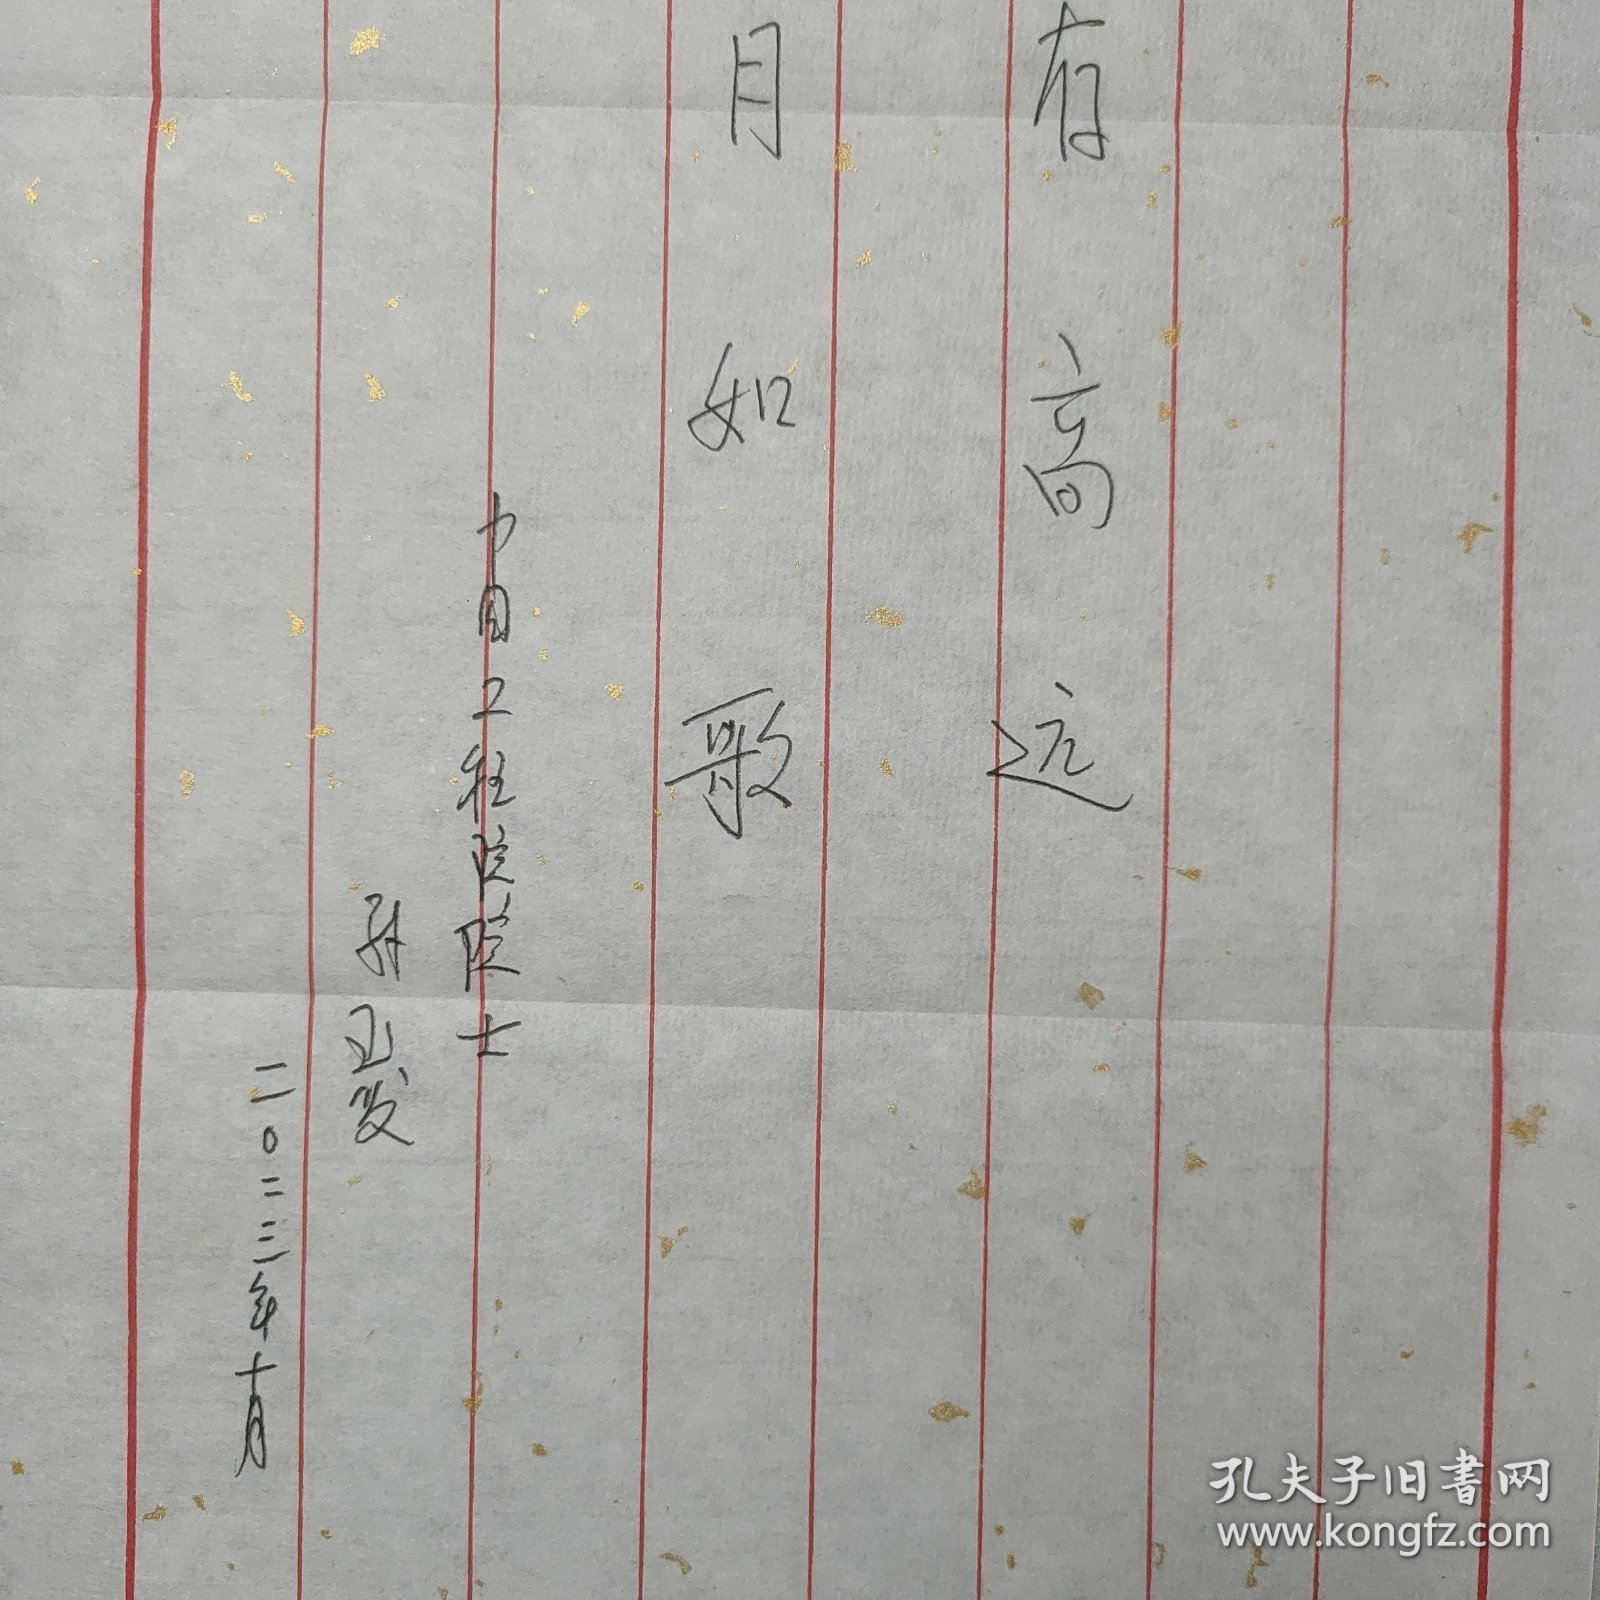 存高远
月如歌
中国工程院院士
孙玉发
二〇二三年十月
孔夫子旧书网
www.kongfz.com